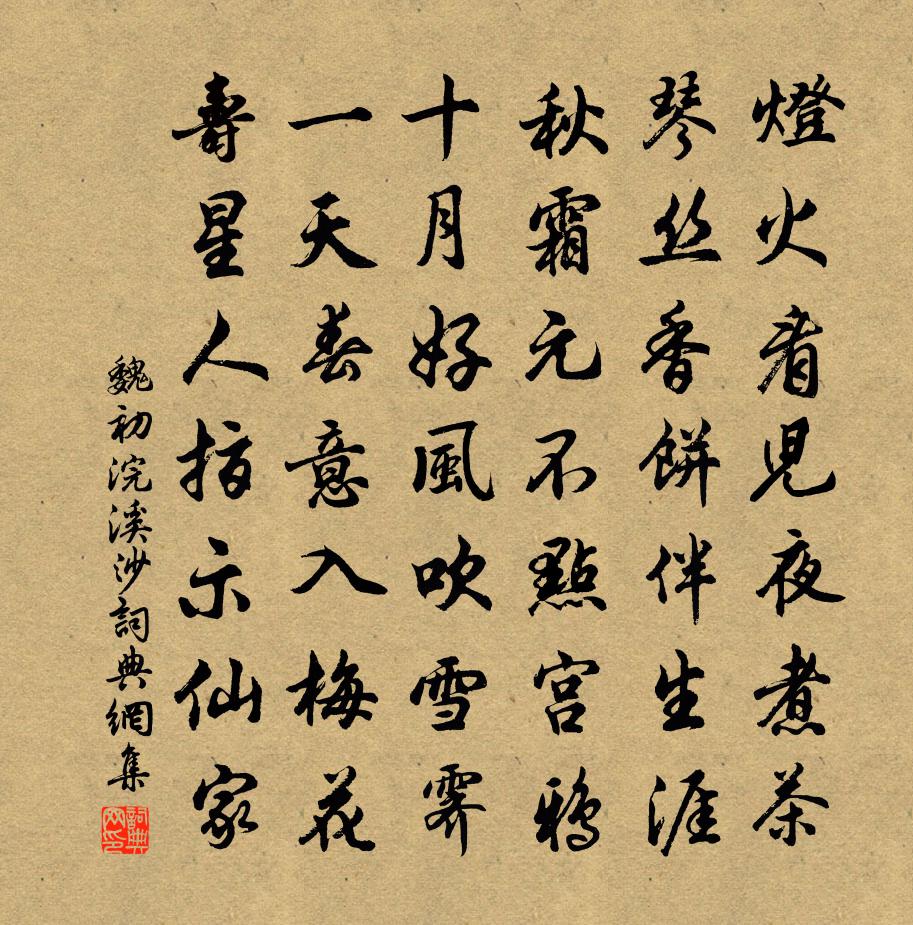 燈火看兒夜煮茶
琴丝香餅伴生涯
秋霜元不點宫鴉
十月好風吹雪霽
一天春意入梅花
壽星人指示仙家
魏初浣溪沙詞典網集
詞典网印